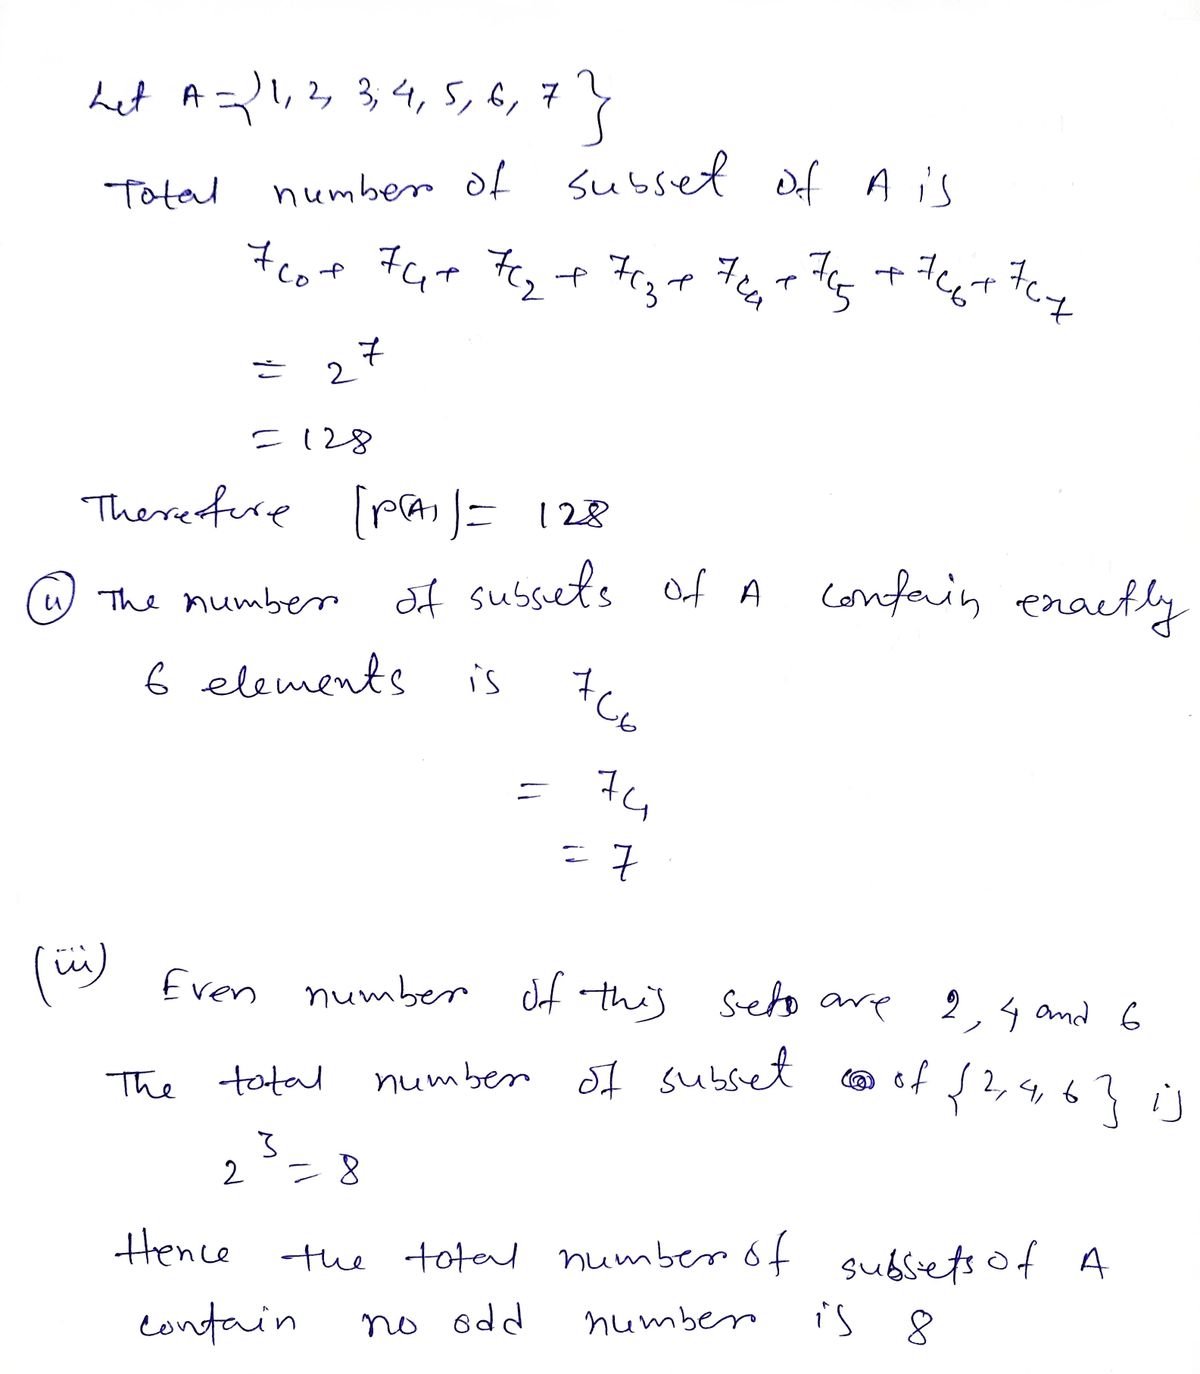 Let A = {1, 2, 3, 4, 5, 6, 7}
Total number of subset of A is
7C0 + 7C1 + 7C2 + 7C3 + 7C4 + 7C5 + 7C6 + 7C7
= 2^7
= 128
Therefore |P(A)| = 128
(ii) The number of subsets of A contain exactly
6 elements is 7C6
= 7C1
= 7
(iii) Even number of this sets are 2, 4 and 6
The total number of subset of {2, 4, 6} is
2^3 = 8
Hence the total number of subsets of A
contain no odd number is 8